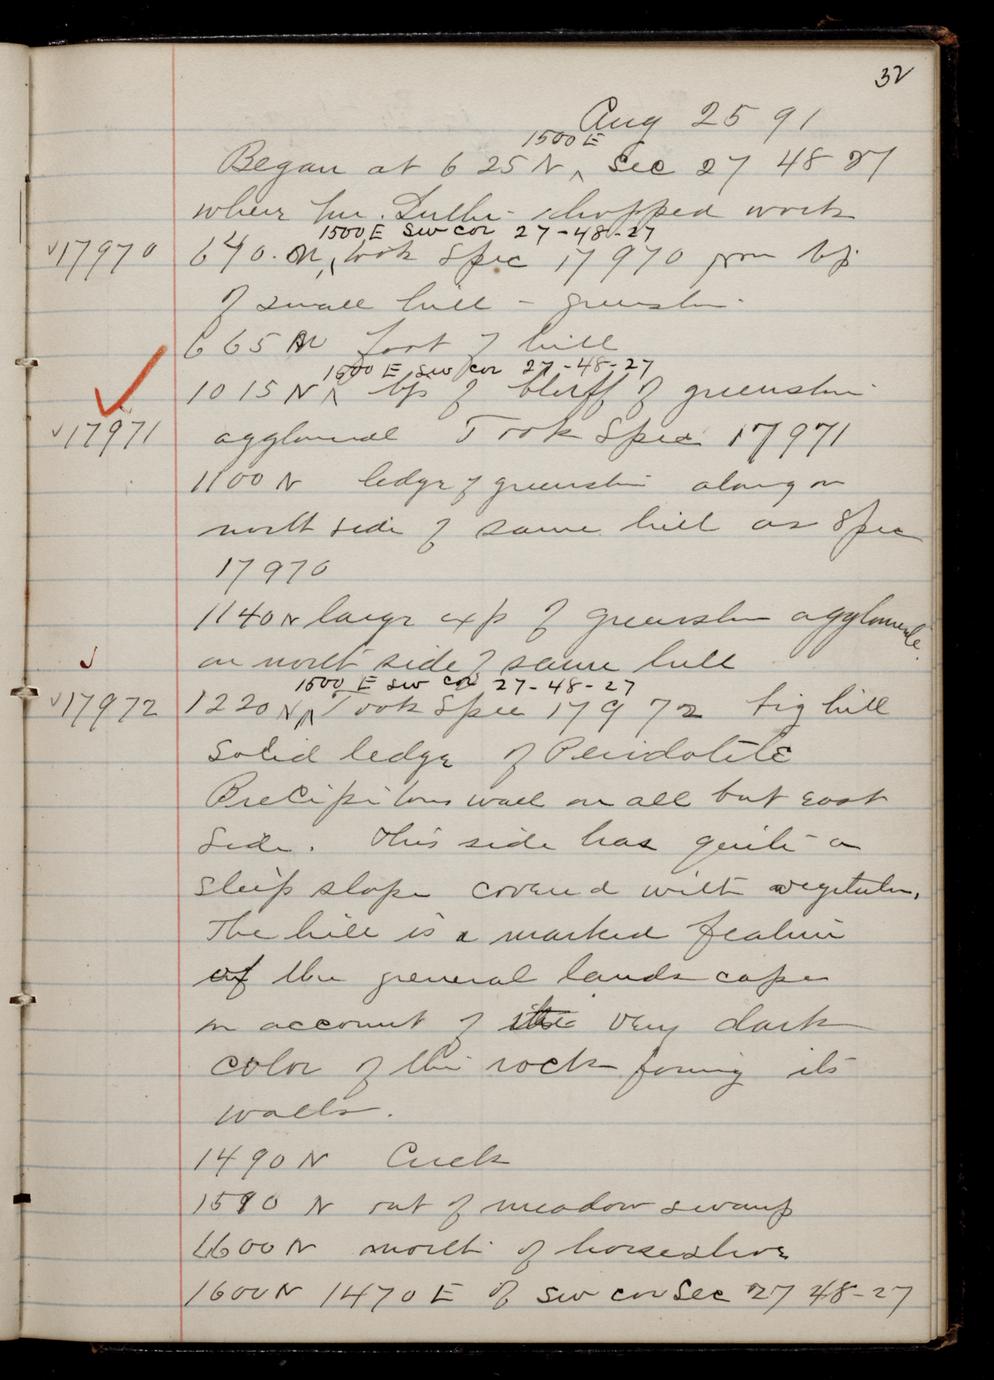 32
Aug 25 91
1500 E
Began at 625 N ‸ Sec 27 48 27
where Mr. stopped work
1500 E SW cor 27-48-27
17970 640 N ‸ took Spec 17970 from top
of small hill - greenstone
665 N foot of hill
1500 E SW cor 27-48-27
1015 N ‸ top of bluff of greenstone
17971 agglomerate Took Spec 17971
1100 N ledge of greenstone along on
north side of same hill as Spec
17970
1140 N large exp of greenstone agglomerate
on north side of same hill
1500 E SW cor 27-48-27
17972 1220 N ‸ Took Spec 17972 big hill
Solid ledge of Peridotite
Precipitous wall on all but east
side. This side has quite a
steep slope covered with vegetation.
The hill is a marked feature
of the general landscape
on account of the very dark
color of the rock forming its
walls.
1490 N Creek
1590 N out of meadow swamp
1600 N north of horseshoe
1600 N 1470 E of SW cor Sec 27 48-27